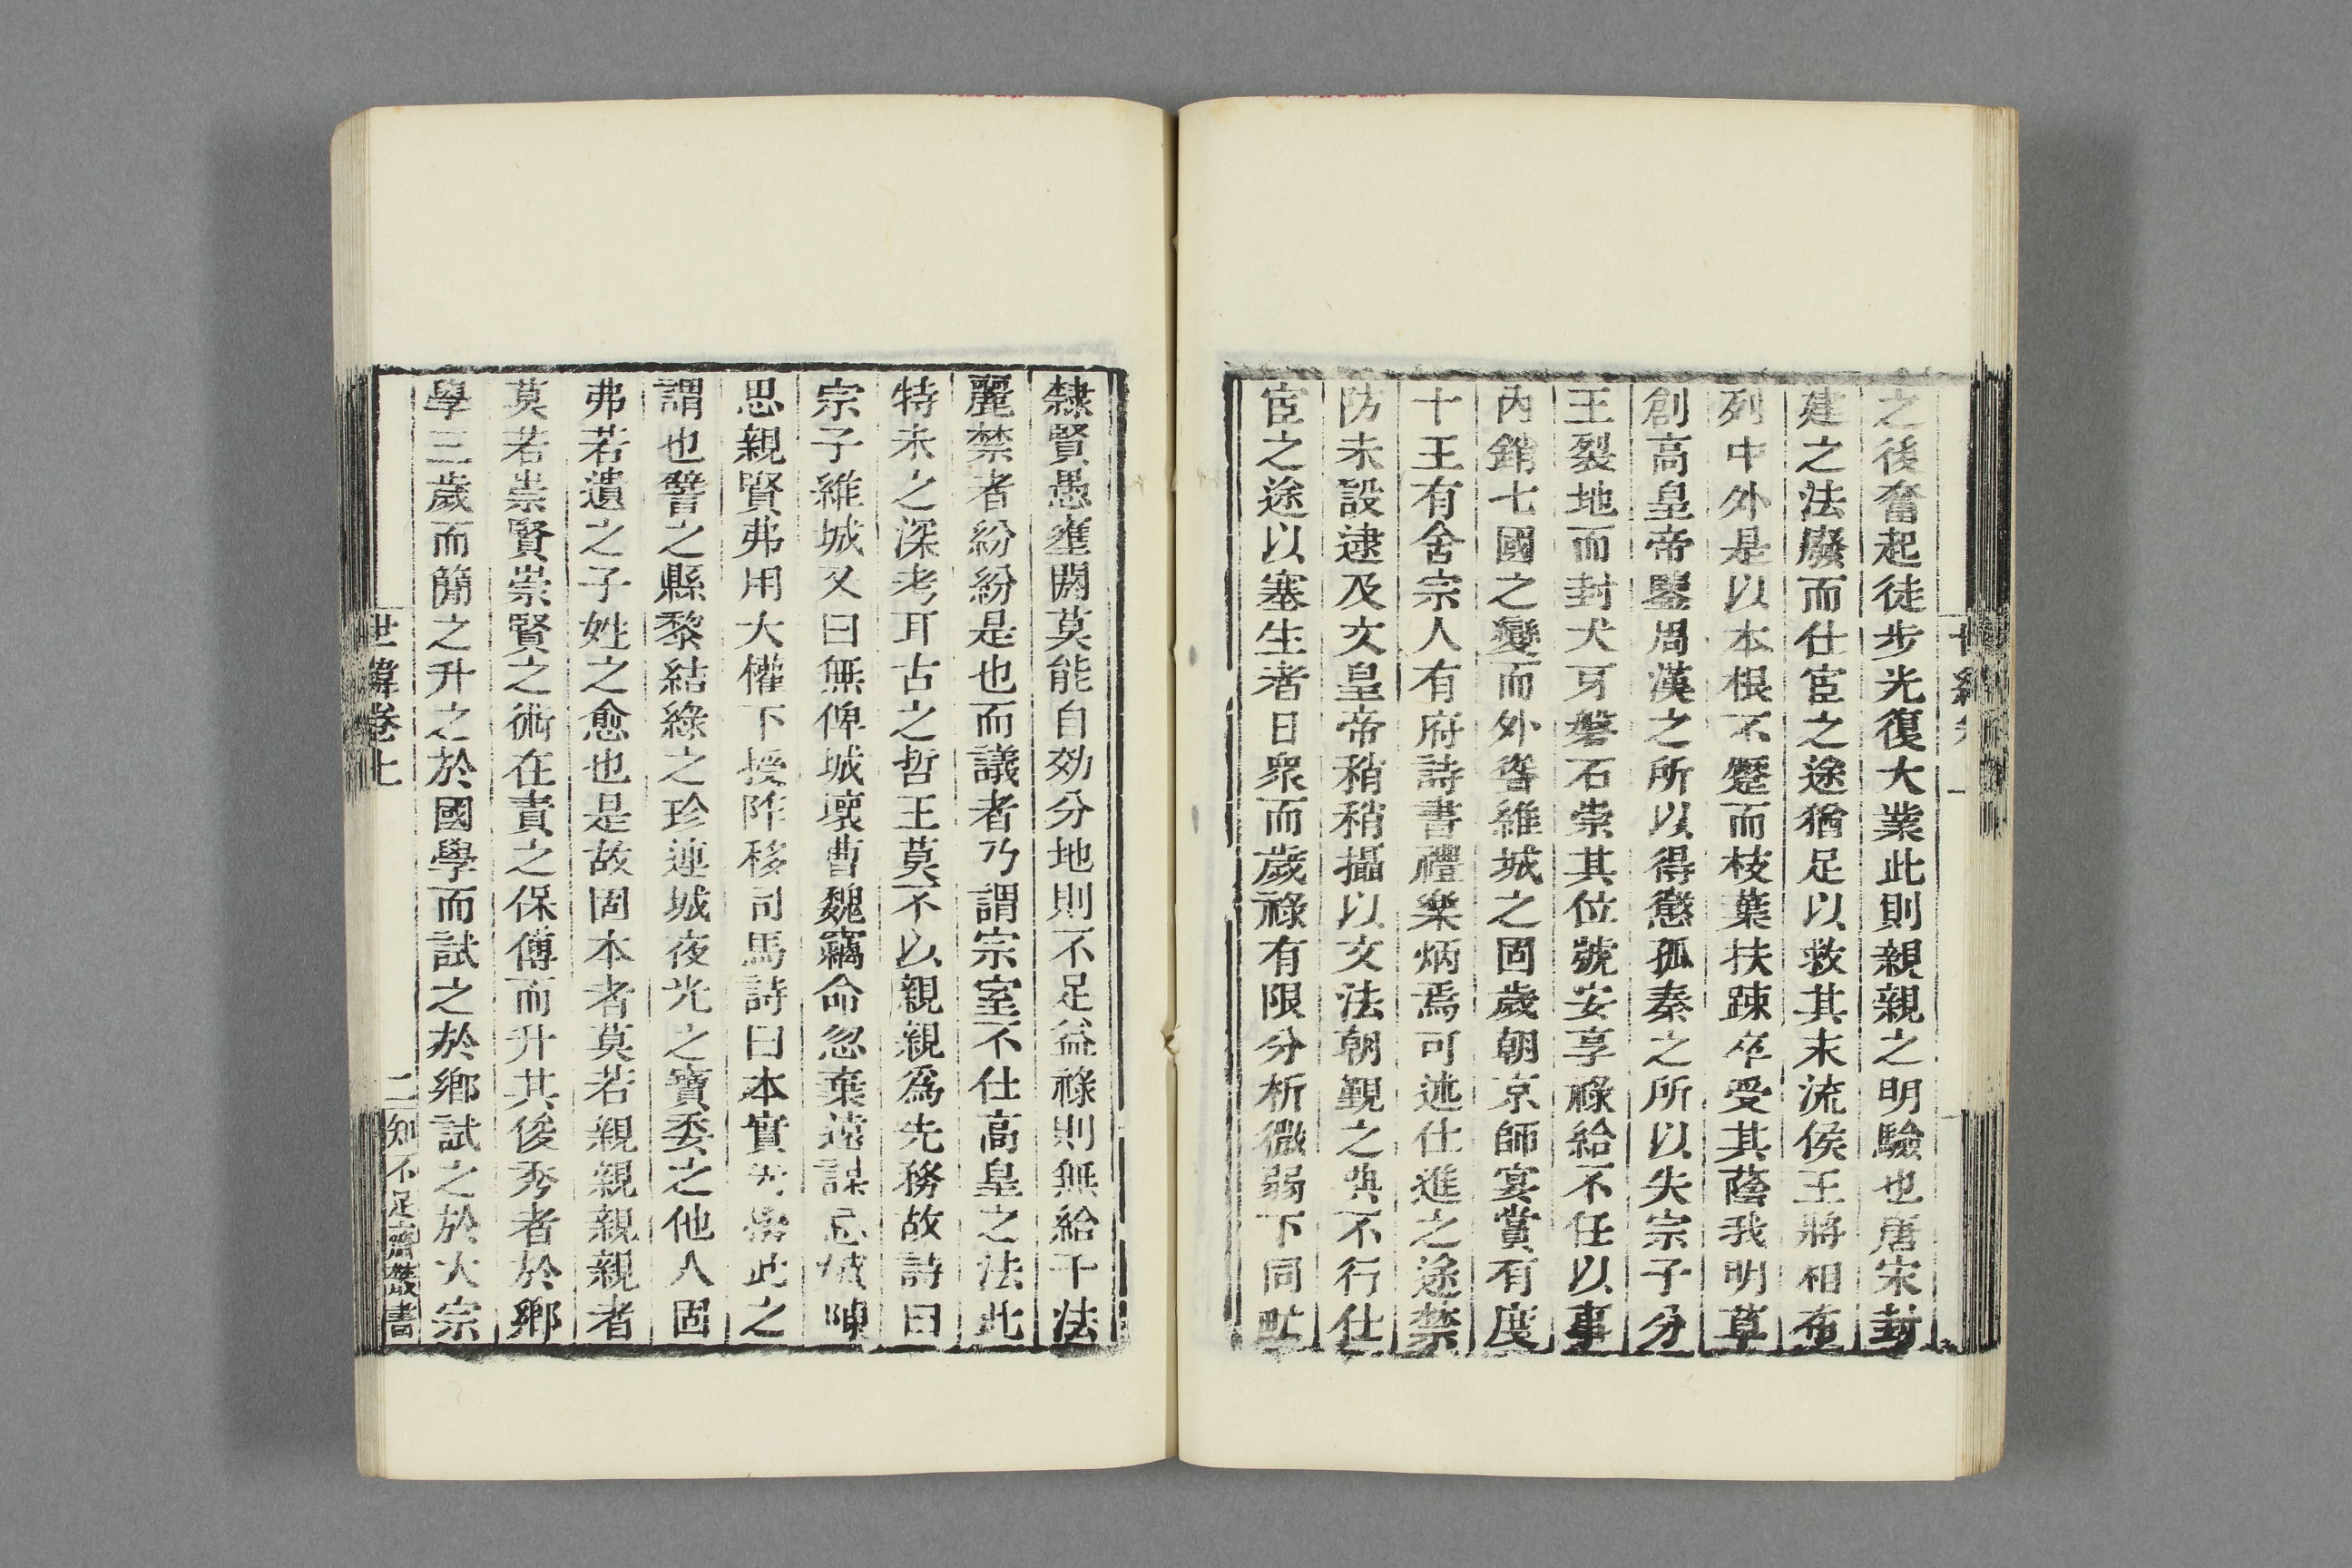 之後奮起徒步光復大業此則親親之明驗也唐宋封
建之法廢而仕宦之途猶足以救其末流侯王將相布
列中外是以本根不蹙而枝葉扶踈卒受其蔭我明草
創高皇帝鑒周漢之所以得懲孤秦之所以失宗子分
王裂地而封犬牙磐石崇其位號安享祿給不任以事
內銷七國之變而外眷維城之固歲朝京師宴賞有度
十王有舍宗人有府詩書禮樂炳焉可述仕進之途禁
防未設逮及文皇帝稍稍攝以文法朝覲之典不行仕
宦之途以塞生者日眾而歲祿有限分析微弱下同氓
隸賢愚壅閼莫能自効分地則不足益祿則無給干法
麗禁者紛紛是也而議者乃謂宗室不仕高皇之法此
特未之深考耳古之哲王莫不以親親爲先務故詩曰
宗子維城又曰無俾城壞曹魏竊命忽棄遠謀忌城陳
思親賢弗用大權下授阼移司馬詩曰本實先撥此之
謂也譬之縣黎結綠之珍連城夜光之寶委之他人固
弗若遺之子姓之愈也是故固本者莫若親親親親者
莫若崇賢崇賢之術在責之保傅而升其俊秀者於鄉
學三歲而簡之升之於國學而試之於鄉試之於大宗
世緯卷上
二 知不足齋叢書